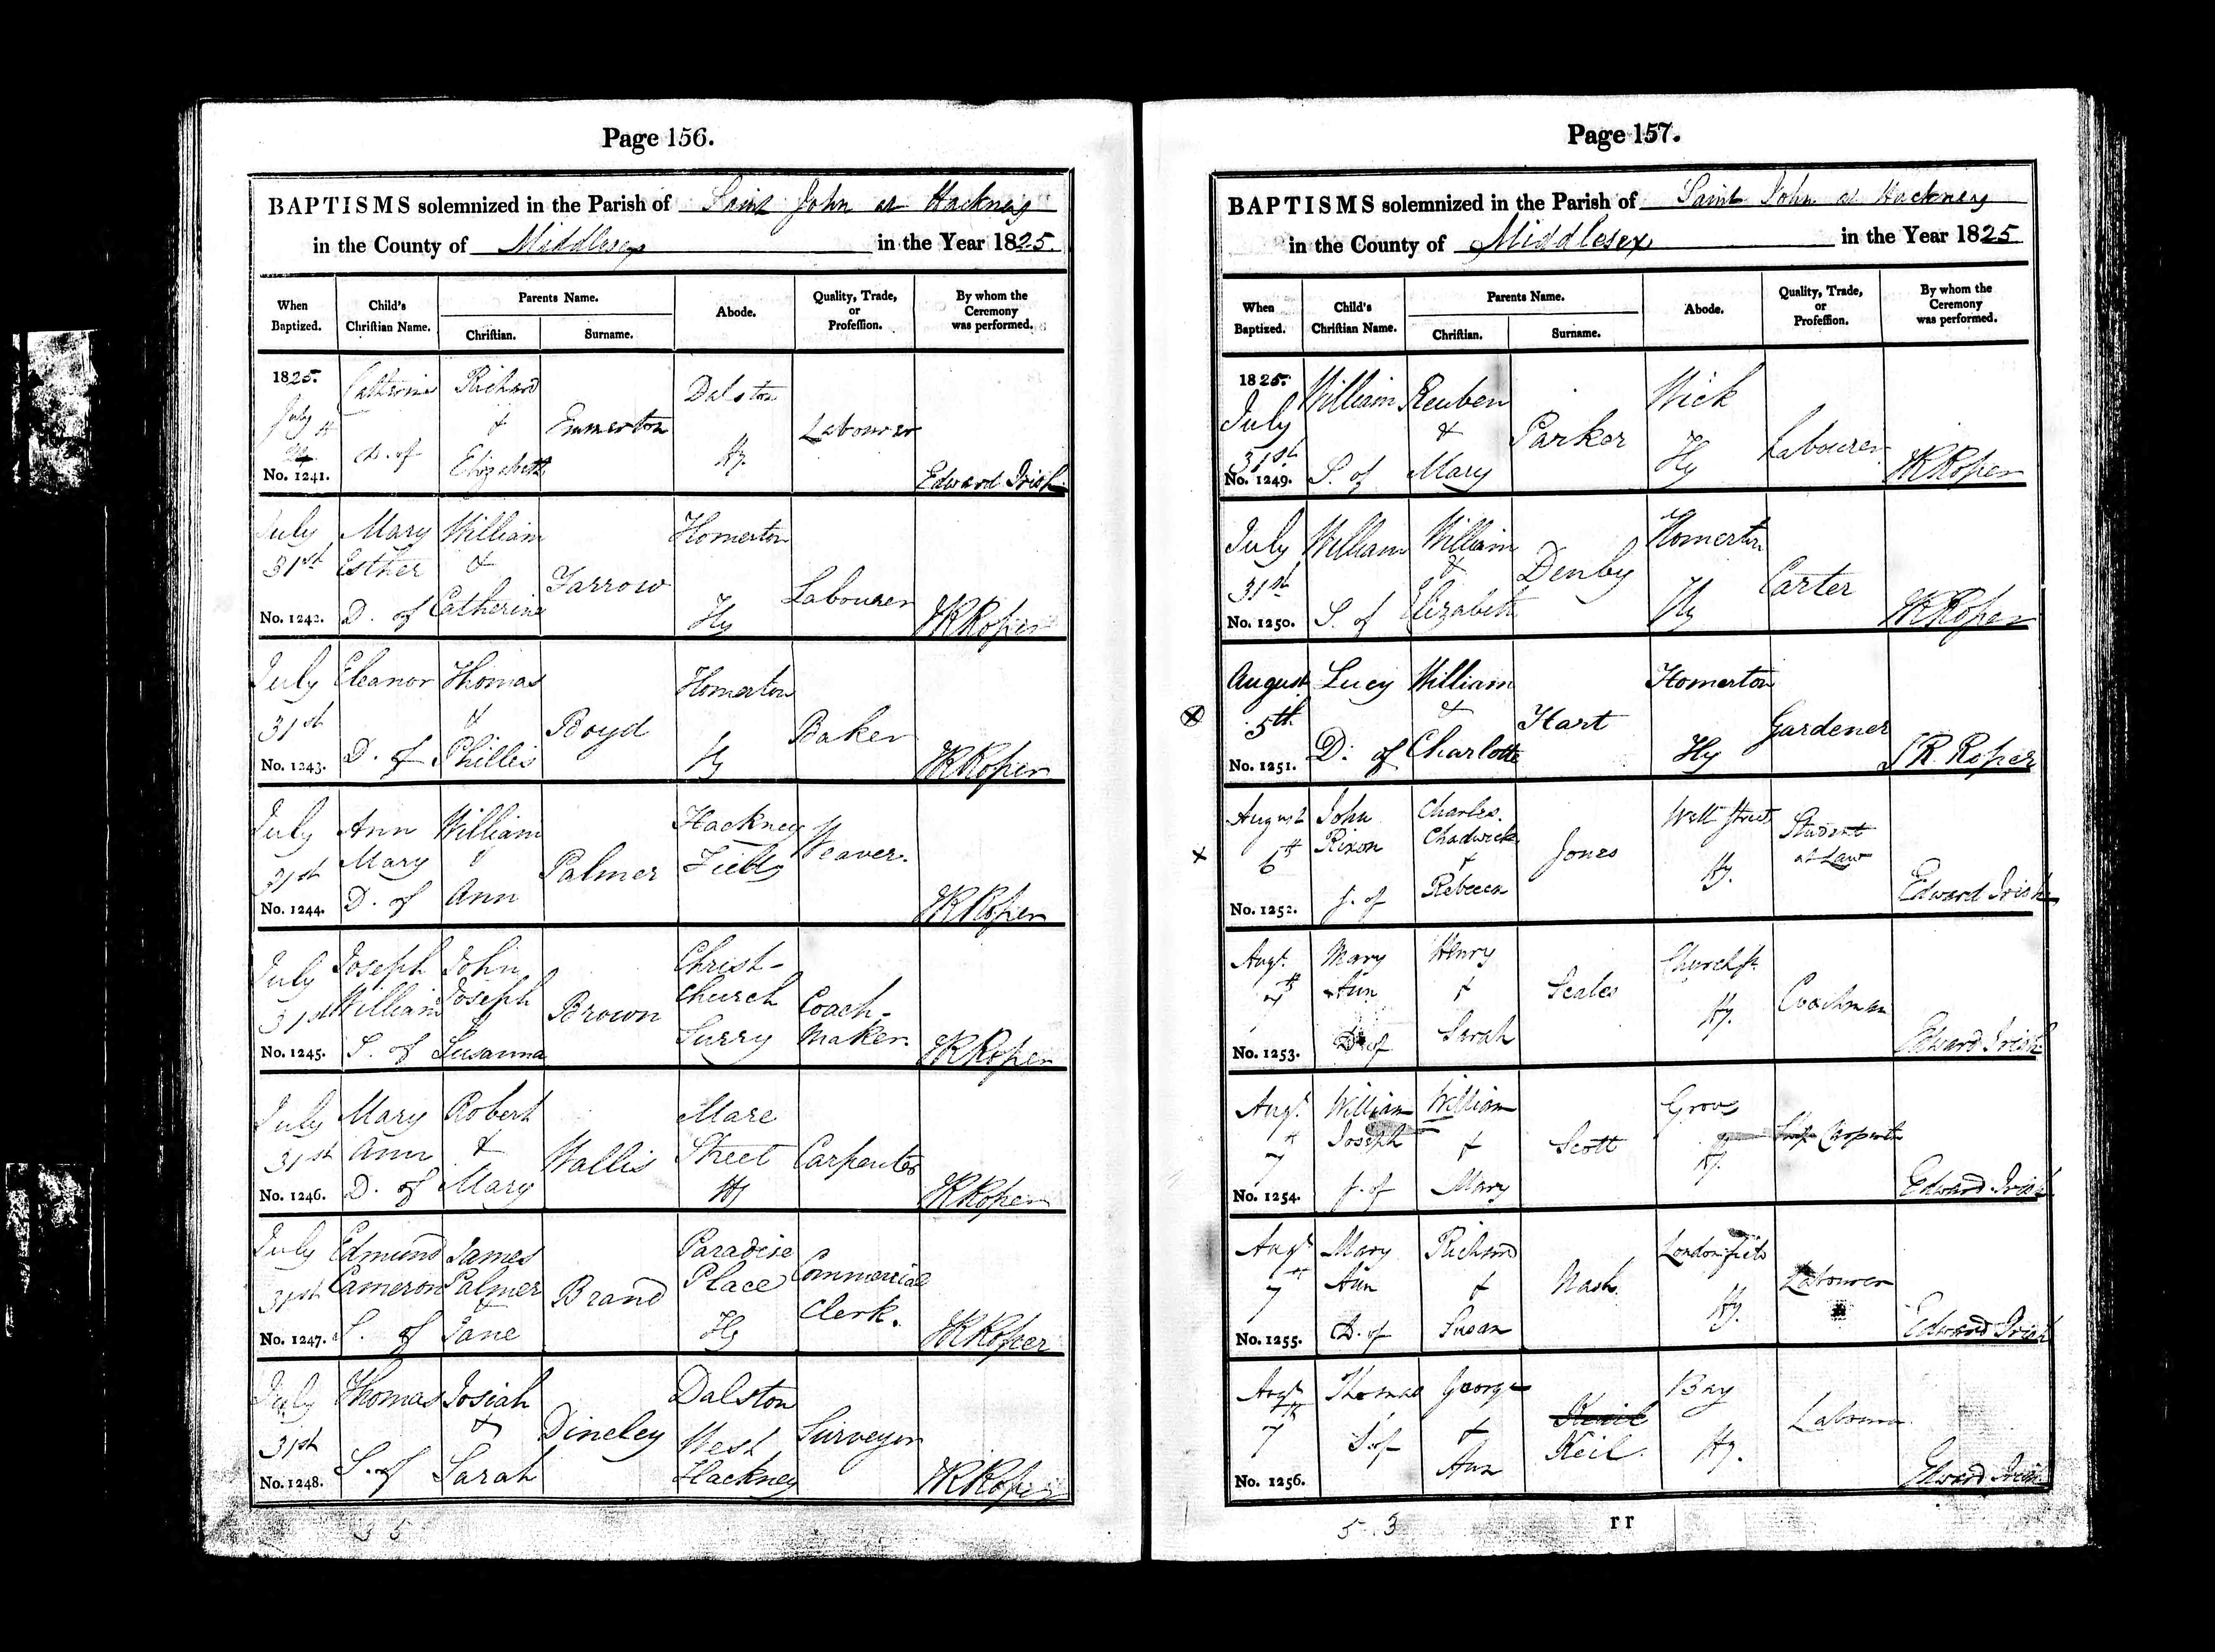 Page 156.
BAPTISMS solemnized in the Parish of Saint John at Hackney
in the County of Middlesex in the Year 1825.
When Baptized.
Child's Christian Name.
Parents Name.
Christian.
Surname.
Abode.
Quality, Trade, or Profession.
By whom the Ceremony was performed.
1825. July
No. 1241.
Catherine D. of
Richard & Elizabeth
Emmerton
Dalston Hy.
Labourer
Edward Irish
July 31st
No. 1242.
Mary Esther D. of
William & Catherine
Farrow
Homerton Hy
Labourer
Roper
July 31st
No. 1243.
Eleanor D. of
Thomas & Phillis
Boyd
Homerton Hy
Baker
Roper
July 31st
No. 1244.
Ann Mary D. of
William & Ann
Palmer
Hackney Fields
Weaver.
Roper
July 31st
No. 1245.
Joseph William S. of
John Joseph & Susanna
Brown
Christ-Church Surry
Coach-Maker.
Roper
July 31st
No. 1246.
Mary Ann D. of
Robert & Mary
Wallis
Mare Street Hy
Carpenter
Roper
July 31st
No. 1247.
Edmund Cameron S. of
James Palmer & Jane
Brand
Paradise Place Hy
Commercial Clerk.
Roper
July 31st
No. 1248.
Thomas S. of
Josiah & Sarah
Dineley
Dalston West Hackney
Surveyor
Roper
35
Page 157.
BAPTISMS solemnized in the Parish of Saint John at Hackney
in the County of Middlesex in the Year 1825
When Baptized.
Child's Christian Name.
Parents Name.
Christian.
Surname.
Abode.
Quality, Trade, or Profession.
By whom the Ceremony was performed.
1825. July 31st
No. 1249.
William S. of
Reuben & Mary
Parker
Wick Hy
Labourer
Roper
July 31st
No. 1250.
William S. of
William & Elizabeth
Denby
Homerton Hy
Carter
Roper
August 5th
No. 1251.
Lucy D. of
William & Charlotte
Hart
Homerton Hy
Gardener
R. Roper
August 6th
No. 1252.
John Rixon S. of
Charles Chadwick & Rebecca
Jones
Well Street Hy.
Student at Law
Edward Irish
Augt. 7th
No. 1253.
Mary Ann D. of
Henry & Sarah
Scales
Church St. Hy.
Coachman
Edward Irish
Augt. 7th
No. 1254.
William Joseph S. of
William & Mary
Scott
Grove Hy.
Carpenter
Edward Irish
Augt 7th
No. 1255.
Mary Ann D. of
Richard & Susan
Nash
London fields Hy.
Labourer
Edward Irish
Augt 7th
No. 1256.
Thomas S. of
George & Ann
Keil
Hy.
Labourer
Edward Irish
53
rr